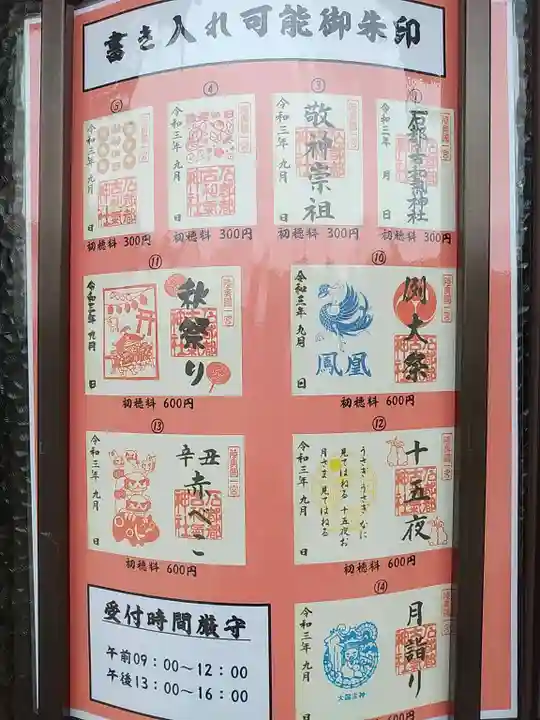 書き入れ可能御朱印
⑤
令和三年 九月 日
初穂料 300円
④
令和三年 九月 日
初穂料 300円
③
敬神宗祖
令和三年 九月 日
初穂料 300円
陸奥國一宮
石都々古和気神社
令和三年 月 日
初穂料 300円
⑪
秋祭り
令和三年 九月 日
初穂料 600円
⑩
陸奥國一宮
例大祭
鳳凰
令和三年 九月 日
初穂料 600円
⑬
陸奥國一宮
辛丑
赤べこ
令和三年 九月 日
初穂料 600円
⑫
陸奥國一宮
十五夜
うさぎうさぎなに
見てはねる 十五夜お
月さま 見てはねる
令和三年 九月 日
初穂料 600円
⑭
月詣り
令和三年 九月 日
初穂料 600円
受付時間厳守
午前09：00～12：00
午後13：00～16：00